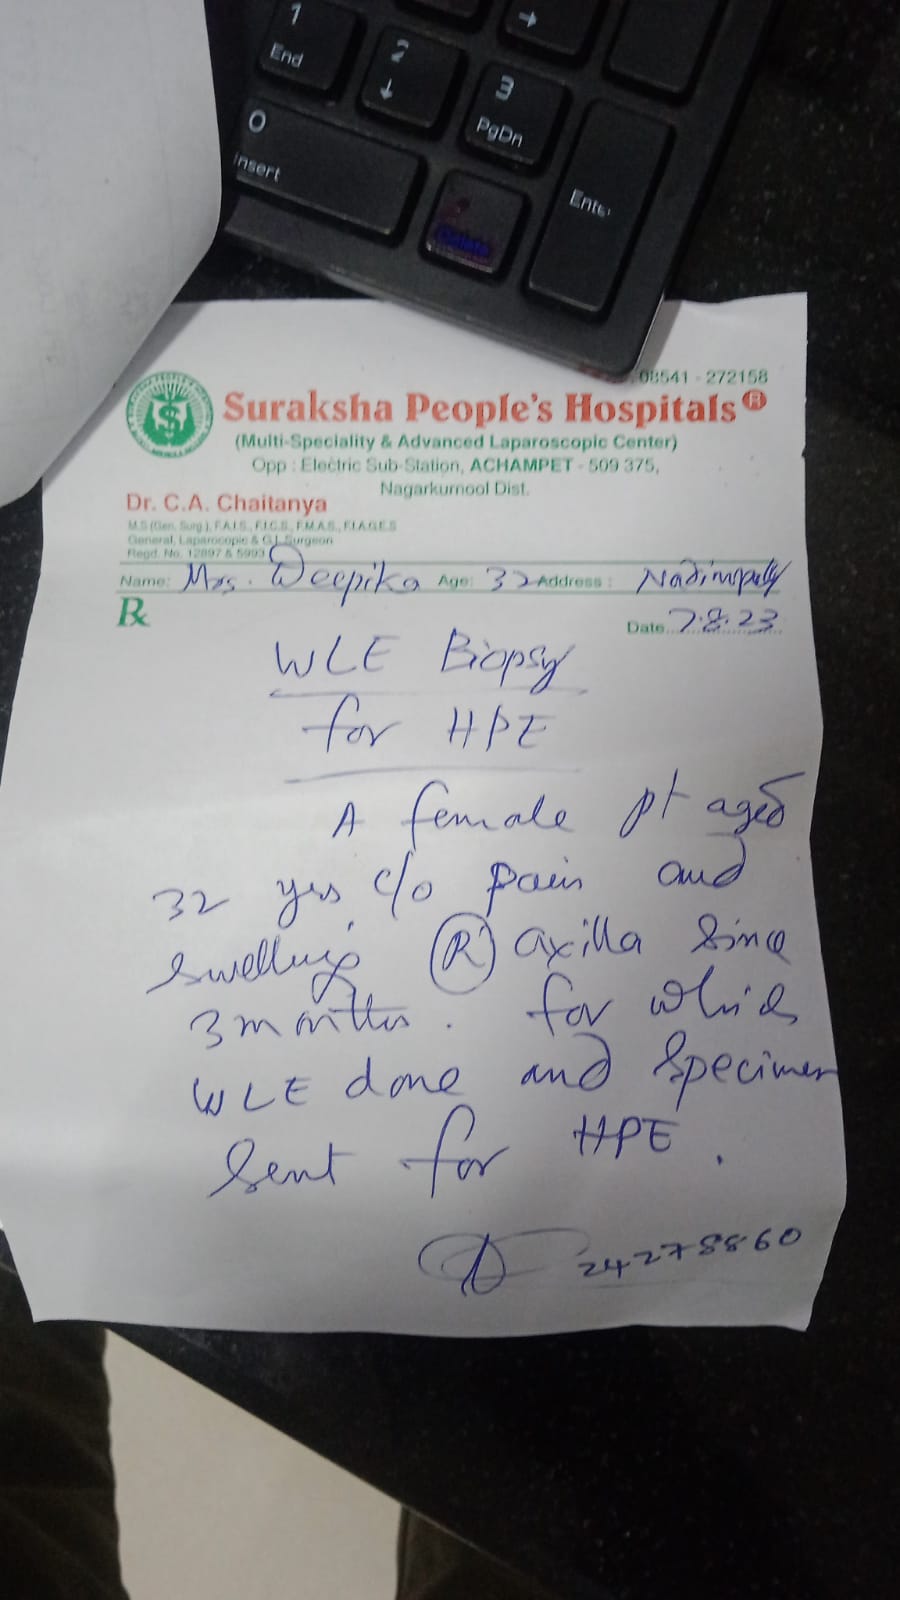 1
End
2
↓
→
3
PgDn
0
Insert
Enter
08541 - 272158
Suraksha People's Hospitals ®
(Multi-Speciality & Advanced Laparoscopic Center)
Opp : Electric Sub-Station, ACHAMPET - 509 375,
Nagarkurnool Dist.
Dr. C.A. Chaitanya
M.S (Gen. Surg.), F.A.I.S., F.I.C.S., F.M.A.S., F.I.A.G.E.S
General, Laparocopic & G.I. Surgeon
Regd. No. 12897 & 5993
Name: Mrs. Deepika Age: 32 Address :
Rx
Date 7.8.23
WLE Biopsy
for HPE
A female pt aged
32 yrs c/o pain and
swelling (R) axilla since
3 months. for which
WLE done and specimen
sent for HPE.
24278860